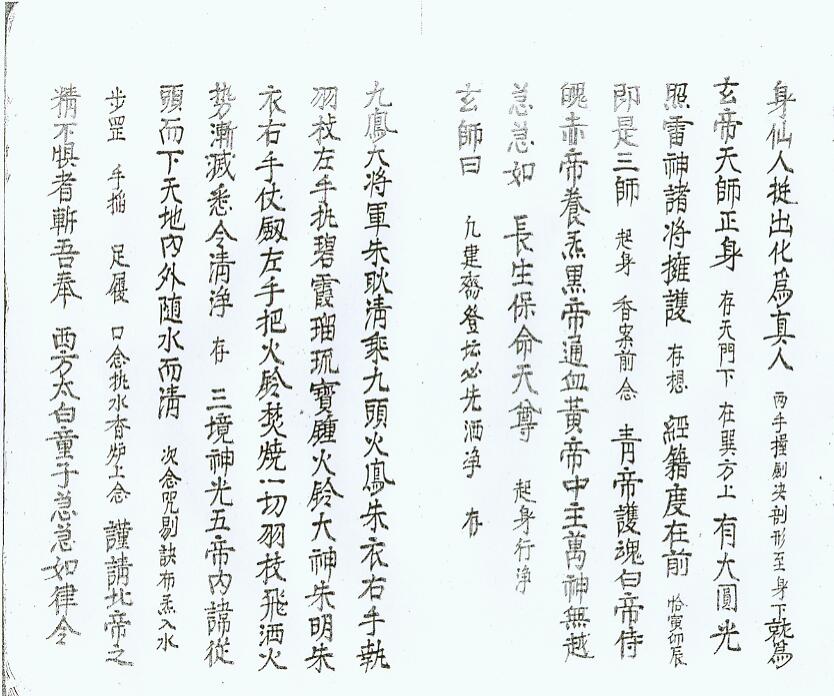 身仙人挺出化爲真人 両手握劍決剖形至身下就爲
玄帝天師正身 存天門下 在巽方上 有大圓光
照雷神諸将擁護 存想 經籍度在前 恰寅卯辰
即是三師 起身 香案前念 青帝護魂白帝侍
魄赤帝養炁黑帝通血黃帝中主萬神無越
急急如 長生保命天尊 起身行浄
玄師曰 凢建齋登坛必先洒浄 存
九鳳大将軍朱耿清乘九頭火鳳朱衣右手執
羽枝左手执碧霞瑠琉寶鍾火鈴大神朱明朱
衣右手仗劔左手把火鈴焚燒一切羽枝飛洒火
势漸滅悉令清浄 存 三境神光五帝内諱從
頭而下天地内外随水而清 次念咒剔訣布炁入水
步罡 手搯 足履 口念执水香炉上念 謹請北帝之
精不惧者斬吾奉 西方太白童子急急如律令